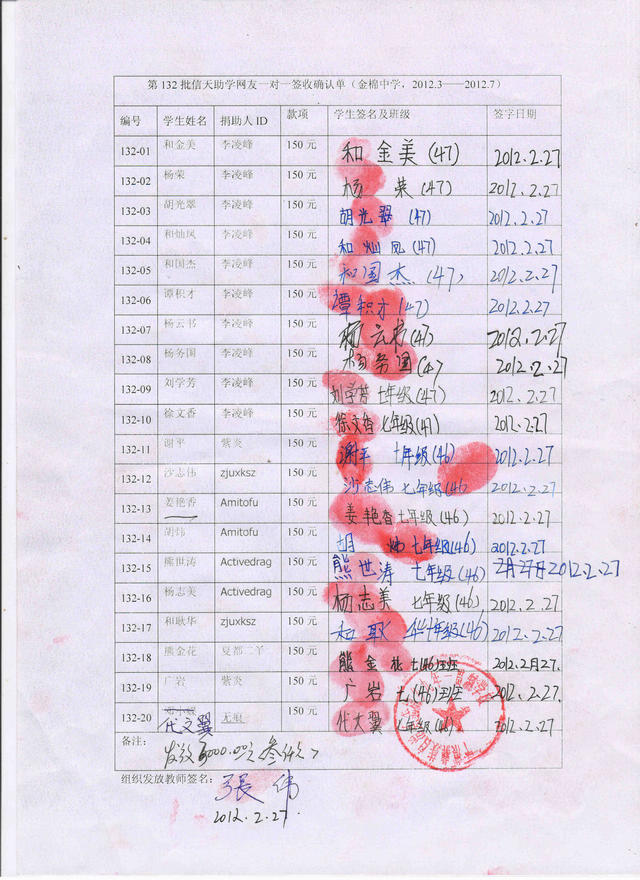 第 132 批信天助学网友一对一签收确认单（金棉中学，2012.3——2012.7）
编号 学生姓名 捐助人 ID 款项 学生签名及班级 签字日期
132-01 和金美 李凌峰 150 元 和金美(47) 2012.2.27
132-02 杨荣 李凌峰 150 元 杨荣(47) 2012.2.27
132-03 胡光翠 李凌峰 150 元 胡光翠(47) 2012.2.27
132-04 和灿凤 李凌峰 150 元 和灿凤(47) 2012.2.27
132-05 和国杰 李凌峰 150 元 和国杰(47) 2012.2.27
132-06 谭积才 李凌峰 150 元 谭积才(47) 2012.2.27
132-07 杨云书 李凌峰 150 元 杨云书(47) 2012.2.27
132-08 杨务国 李凌峰 150 元 杨务国(47 2012.2.27
132-09 刘学芳 李凌峰 150 元 刘学芳 七年级(47) 2012.2.27
132-10 徐文香 李凌峰 150 元 徐文香 七年级(47) 2012.2.27
132-11 谢平 紫炎 150 元 谢平 七年级(46) 2012.2.27
132-12 沙志伟 zjuxksz 150 元 沙志伟 七年级(46 2012.2.27
132-13 姜艳香 Amitofu 150 元 姜艳香七年级(46) 2012.2.27
132-14 胡炜 Amitofu 150 元 胡 七年级(46) 2012.2.27
132-15 熊世涛 Activedrag 150 元 熊世涛 七年级(46) 2月27日2012.2.27
132-16 杨志美 Activedrag 150 元 杨志美 七年级(46) 2012.2.27
132-17 和耿华 zjuxksz 150 元 和耿华七年级(46) 2012.2.27
132-18 熊金花 夏都二丫 150 元 熊金花 七(46)班 2012.2月27.
132-19 广岩 紫炎 150 元 广岩 七(46)班 2012.2.27.
132-20 代文翼 无痕 150 元 代文翼 七年级(46) 2012.2.27
备注： 发放3000.00元
组织发放教师签名：
張伟
2012.2.27